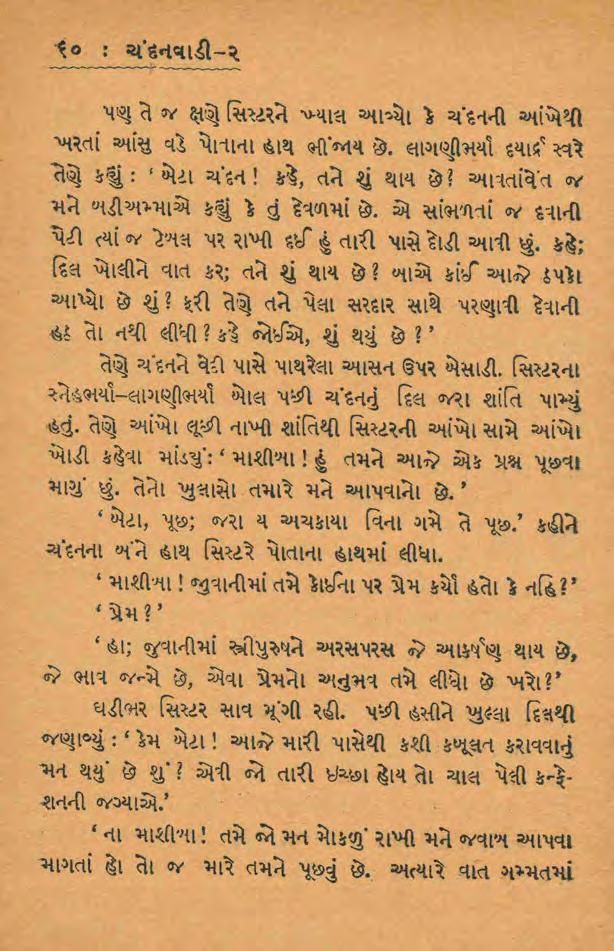 ૬૦ : ચંદનવાડી–૨
પણ તે જ ક્ષણે સિસ્ટરને ખ્યાલ આવ્યો કે ચંદનની આંખેથી
ખરતાં આંસુ વડે પોતાના હાથ ભીંજાય છે. લાગણીભર્યા દયાર્દ્ર સ્વરે
તેણે કહ્યું : ‘ બેટા ચંદન! કહે, તને શું થાય છે? આવતાંવેંત જ
મને બડીઅમ્માએ કહ્યું કે તું દેવળમાં છે. એ સાંભળતાં જ દવાની
પેટી ત્યાં જ ટેબલ પર રાખી દઈ હું તારી પાસે દોડી આવી છું. કહે;
દિલ ખોલીને વાત કર; તને શું થાય છે? બાએ કાંઈ આજે ઠપકો
આપ્યો છે શું? ફરી તેણે તને પેલા સરદાર સાથે પરણાવી દેવાની
હઠ તો નથી લીધી? કહે જોઈએ, શું થયું છે ?’
તેણે ચંદનને વેદી પાસે પાથરેલા આસન ઉપર બેસાડી. સિસ્ટરના
સ્નેહભર્યા–લાગણીભર્યા બોલ પછી ચંદનનું દિલ જરા શાંતિ પામ્યું
હતું. તેણે આંખો લૂછી નાખી શાંતિથી સિસ્ટરની આંખો સામે આંખો
ખોડી કહેવા માંડ્યું: ‘ માશીબા ! હું તમને આજે એક પ્રશ્ન પૂછવા
માગું છું. તેનો ખુલાસો તમારે મને આપવાનો છે.’
‘ બેટા, પૂછ; જરા ય અચકાયા વિના ગમે તે પૂછ.’ કહીને
ચંદનના બંને હાથ સિસ્ટરે પોતાના હાથમાં લીધા.
‘ માશીબા ! જુવાનીમાં તમે કોઈના પર પ્રેમ કર્યો હતો કે નહિ?’
‘ પ્રેમ ?’
‘ હા; જુવાનીમાં સ્ત્રીપુરુષને અરસપરસ જે આકર્ષણ થાય છે,
જે ભાવ જન્મે છે, એવા પ્રેમનો અનુભવ તમે લીધો છે ખરો?’
ઘડીભર સિસ્ટર સાવ મૂંગી રહી. પછી હસીને ખુલ્લા દિલથી
જણાવ્યું : ‘ કેમ બેટા! આજે મારી પાસેથી કશી કબૂલત કરાવવાનું
મન થયું છે શું? એવી જો તારી ઇચ્છા હોય તો ચાલ પેલી કન્ફે-
શનની જગ્યાએ.’
‘ ના માશીબા! તમે જો મન મોકળું રાખી મને જવાબ આપવા
માગતાં હો તો જ મારે તમને પૂછવું છે. અત્યારે વાત ગમ્મતમાં